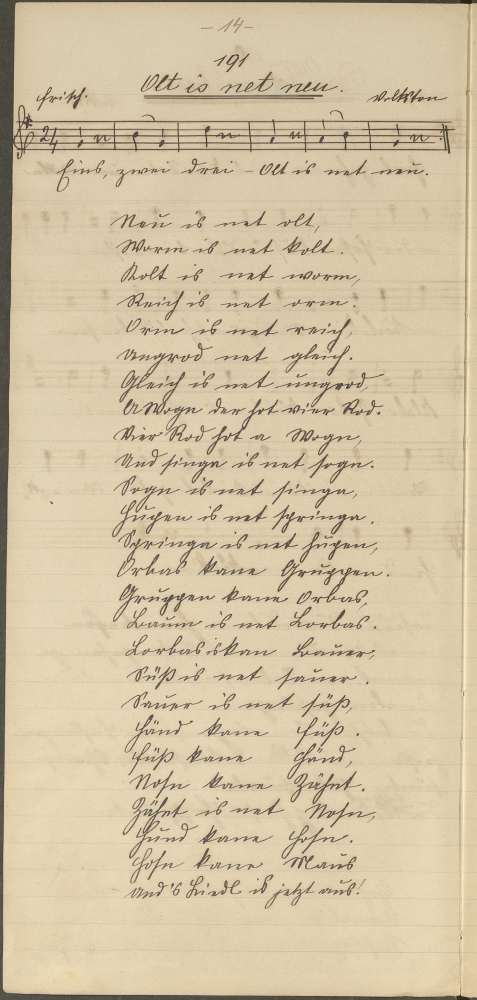 - 14 -
191
Olt is net neu.
frisch.
Volkston
2/4
Eins, zwei drei - Olt is net neu.
Neu is net olt,
Worm is net kolt.
Kolt is net worm,
Reich is net orm.
Orm is net reich,
Ungrod net gleich.
Gleich is net ungrod,
A Wogn der hot vier Rod.
Vier Rod hot a Wogn,
Und singa is net sogn.
Sogn is net singa,
Hupen is net springa.
Springa is net hupen,
Orbas kane Gruppen.
Gruppen kane Orbas,
Baum is net Lorbas.
Lorbas is kan Bauer,
Süß is net sauer.
Sauer is net süß,
Händ kane Füß.
Füß kane Händ,
Nosn kane Zähnt.
Zähnt is net Nosn,
Hund kane Hosn.
Hosn kane Maus
und's Liedl is jetzt aus!